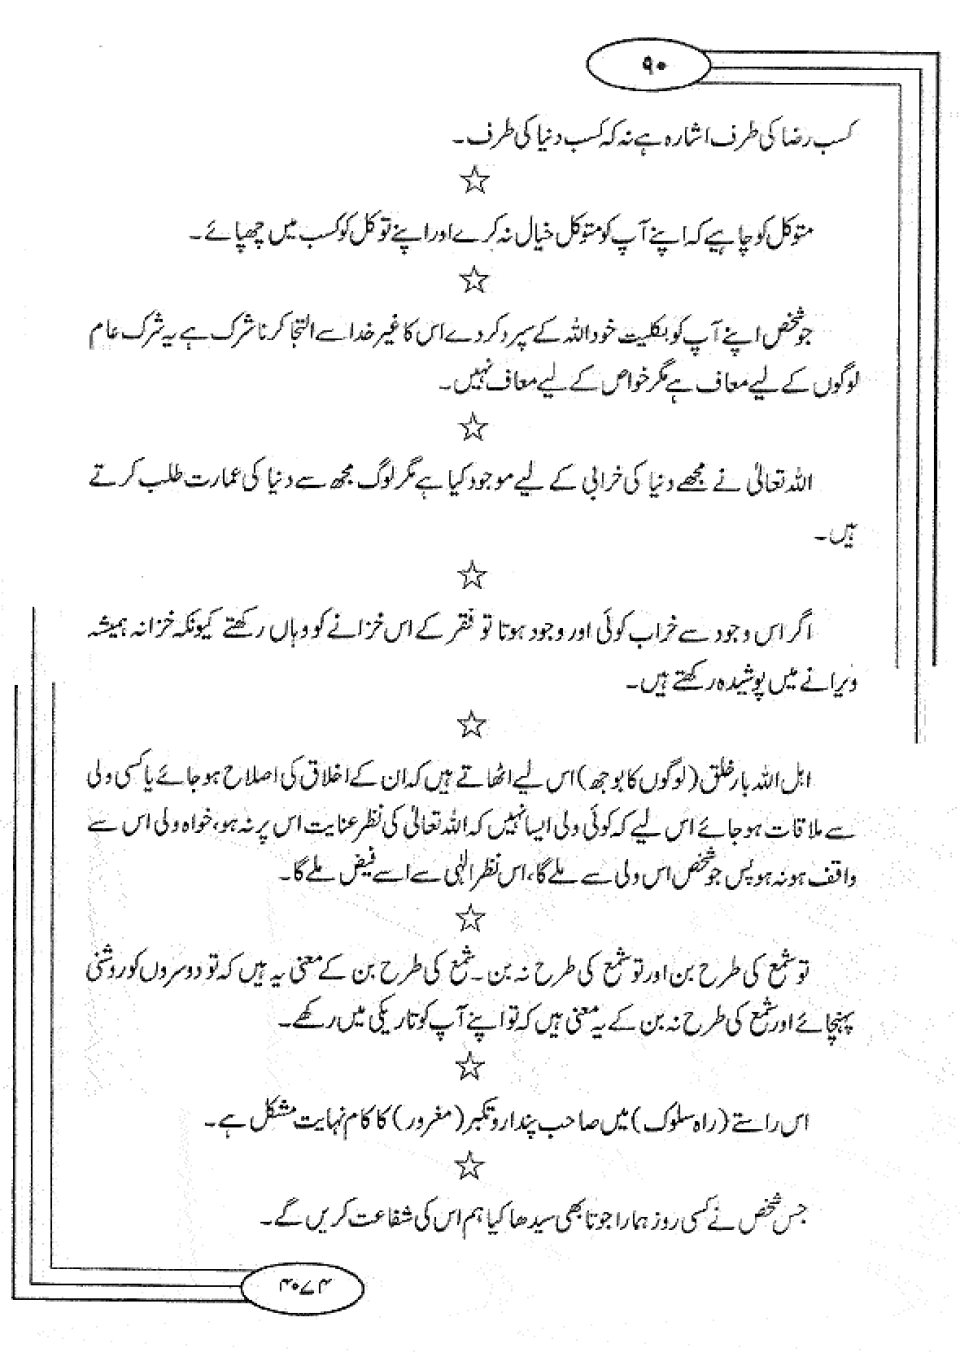 ۹۰
کسب رضا کی طرف اشارہ ہے نہ کہ کسب دنیا کی طرف۔
☆
متوکل کو چاہیے کہ اپنے آپ کو متوکل خیال نہ کرے اور اپنے توکل کو کسب میں چھپائے۔
☆
جو شخص اپنے آپ کو بکلیت خود اللہ کے سپرد کر دے اس کا غیر خدا سے التجا کرنا شرک ہے یہ شرک عام
لوگوں کے لیے معاف ہے مگر خواص کے لیے معاف نہیں۔
☆
اللہ تعالیٰ نے مجھے دنیا کی خرابی کے لیے موجود کیا ہے مگر لوگ مجھ سے دنیا کی عمارت طلب کرتے
ہیں۔
☆
اگر اس وجود سے خراب کوئی اور وجود ہوتا تو فقر کے اس خزانے کو وہاں رکھتے کیونکہ خزانہ ہمیشہ
ویرانے میں پوشیدہ رکھتے ہیں۔
☆
اہل اللہ بار خلق (لوگوں کا بوجھ) اس لیے اٹھاتے ہیں کہ ان کے اخلاق کی اصلاح ہو جائے یا کسی ولی
سے ملاقات ہو جائے اس لیے کہ کوئی ولی ایسا نہیں کہ اللہ تعالیٰ کی نظر عنایت اس پر نہ ہو، خواہ ولی اس سے
واقف ہو نہ ہو پس جو شخص اس ولی سے ملے گا، اس نظر الٰہی سے اسے فیض ملے گا۔
☆
تو شمع کی طرح بن اور تو شمع کی طرح نہ بن۔ شمع کی طرح بن کے معنی یہ ہیں کہ تو دوسروں کو روشنی
پہنچائے اور شمع کی طرح نہ بن کے یہ معنی ہیں کہ تو اپنے آپ کو تاریکی میں رکھے۔
☆
اس راستے (راہ سلوک) میں صاحب پندار و تکبر (مغرور) کا کام نہایت مشکل ہے۔
☆
جس شخص نے کسی روز ہمارا جوتا بھی سیدھا کیا ہم اس کی شفاعت کریں گے۔